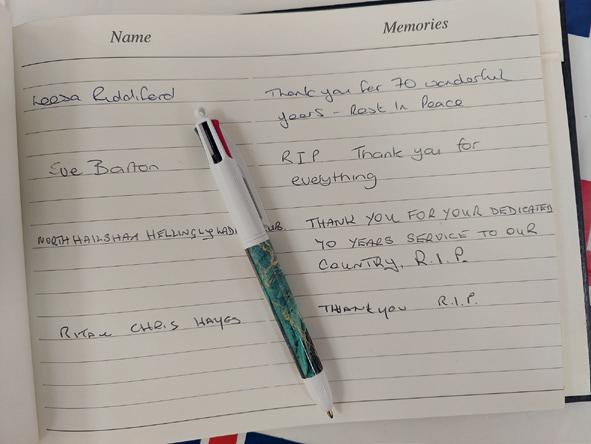 Name
Memories
Leesa Riddiford
Thank you for 70 wonderful
years - Rest In Peace
Sue Barton
RIP Thank you for
everything
NORTH HAILSHAM HELLINGLY LADI
UB
THANK YOU FOR YOUR DEDICATED
70 YEARS SERVICE TO OUR
COUNTRY. R.I.P.
CHRIS HAYES
THANK you R.I.P.